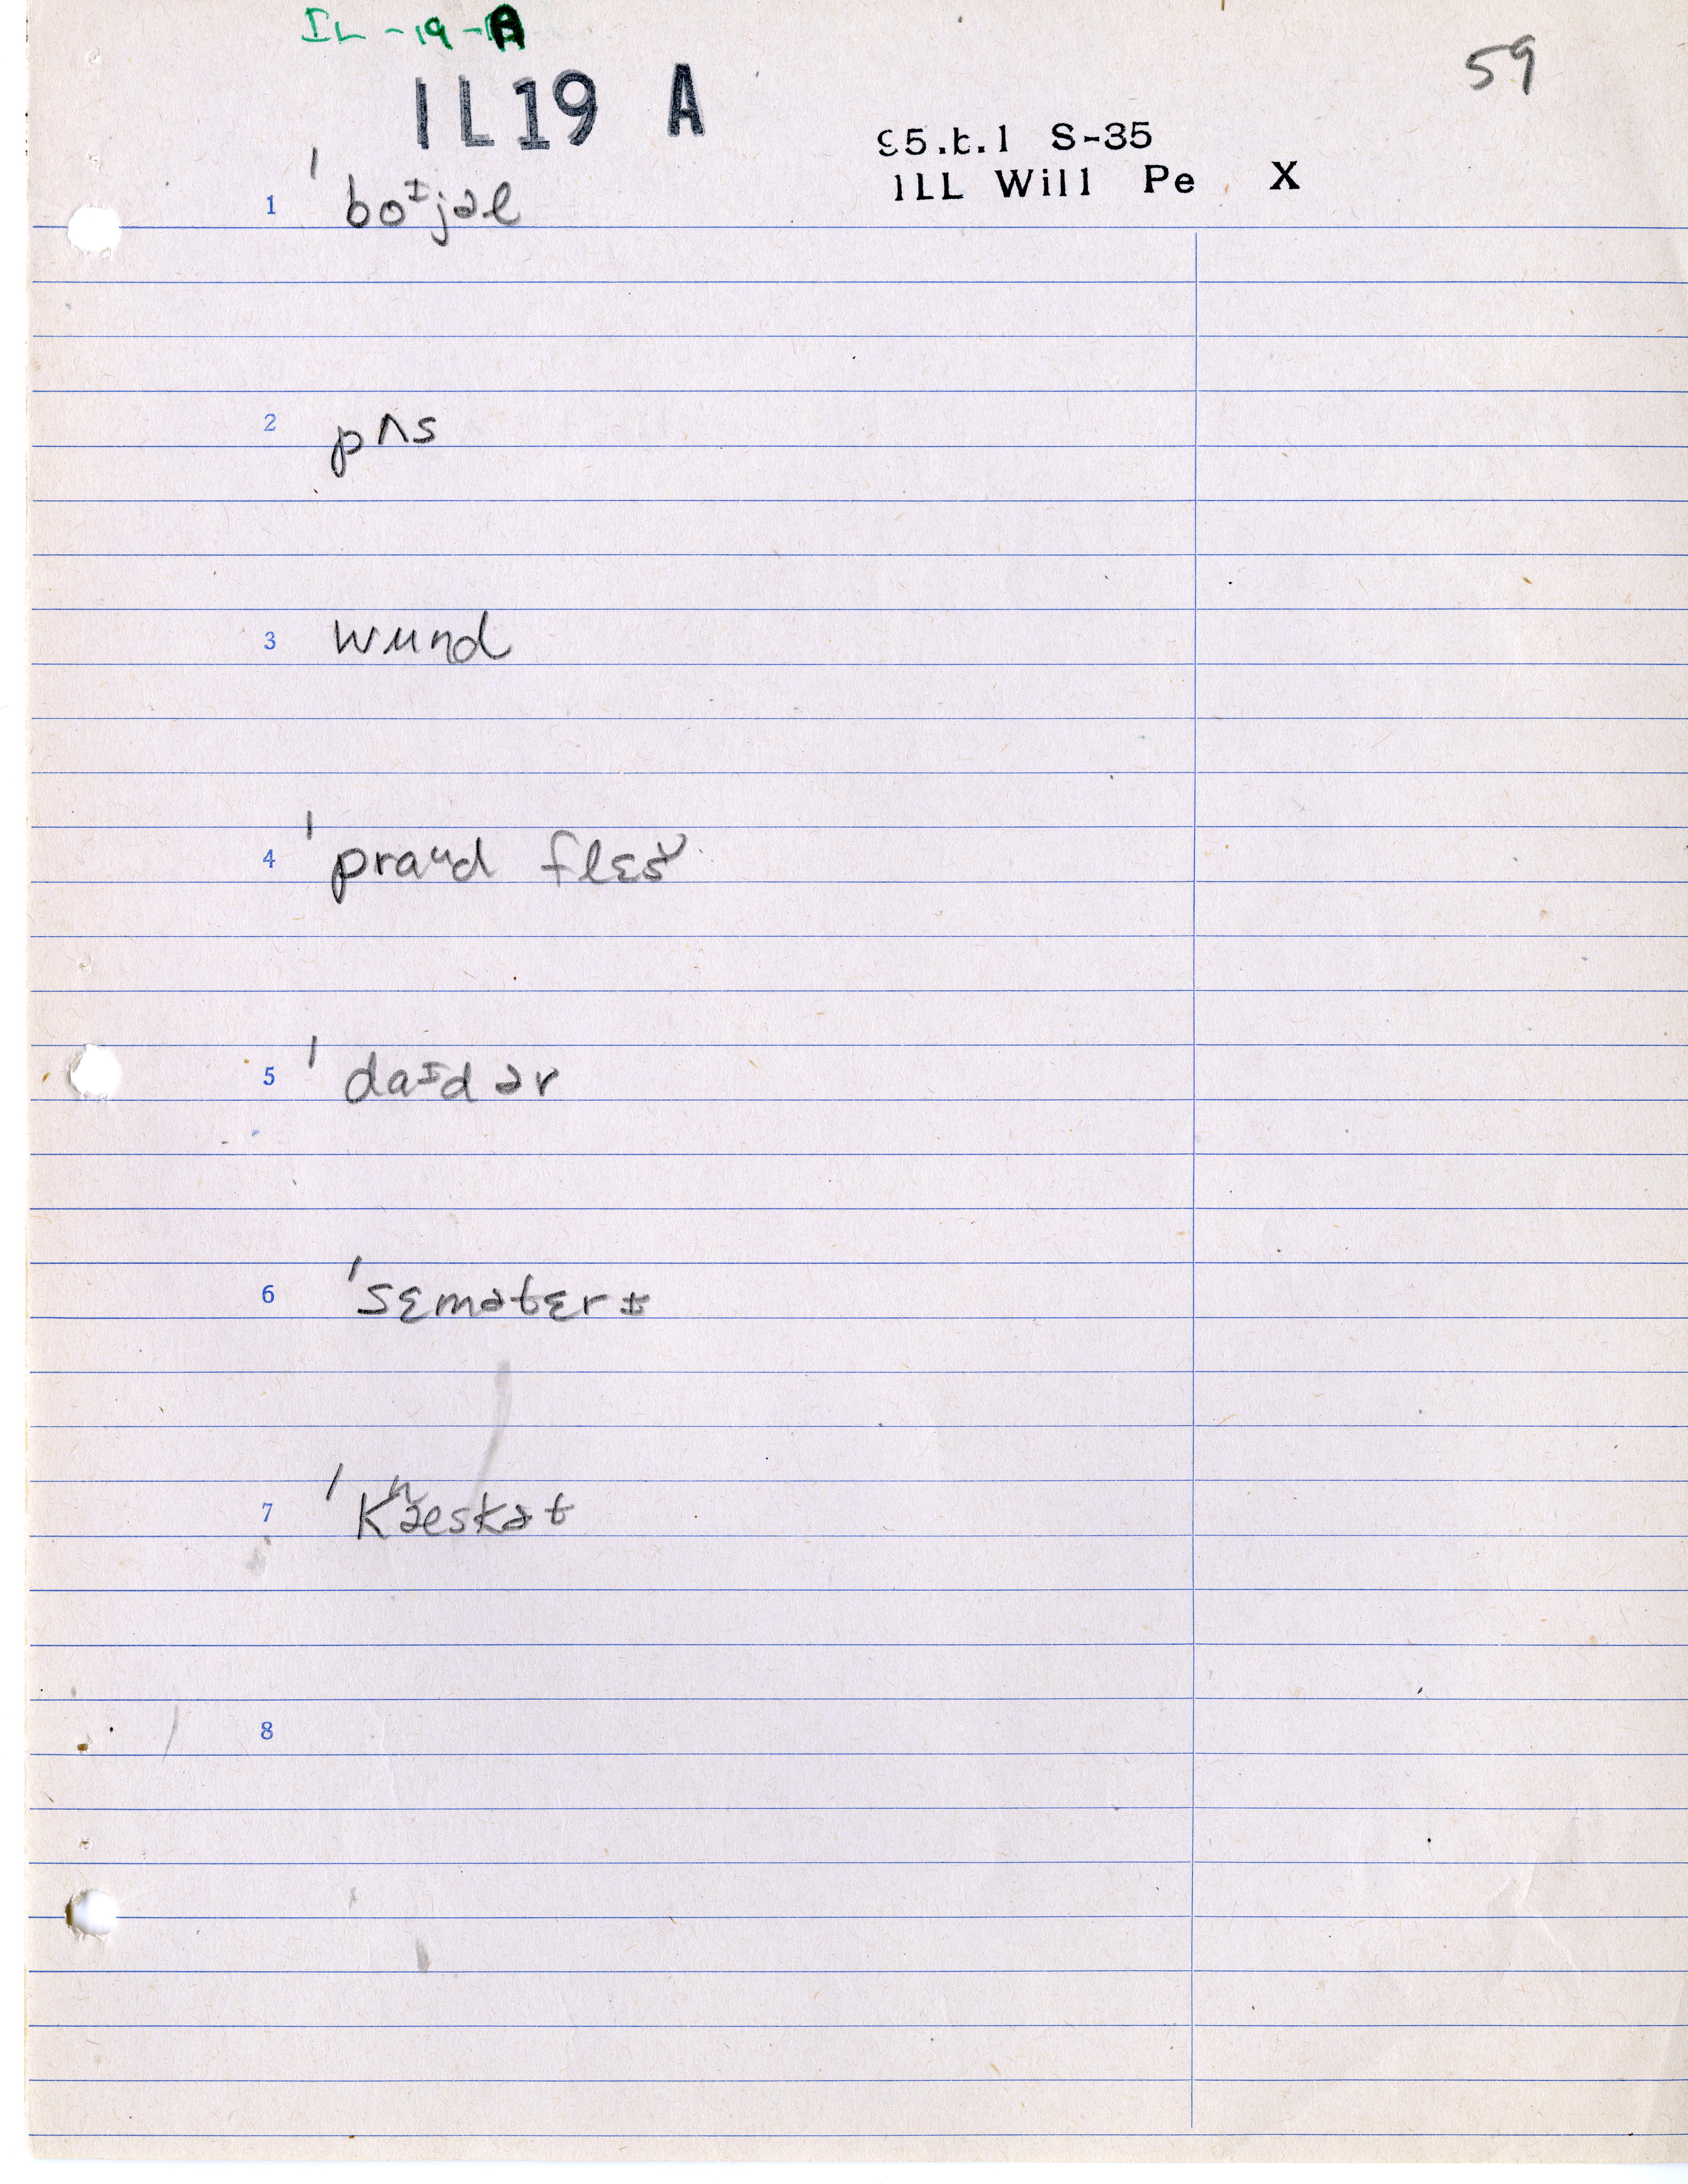 IL-19-A
59
IL19 A
95.t.1 S-35
ILL Will Pe X
1 ˈboᶦjəl
2 pʌs
3 wund
4 ˈpraᵘd flɛš
5 ˈdaᶦdər
6 ˈsɛmətɛrɪ
7 ˈkʰæskət
8